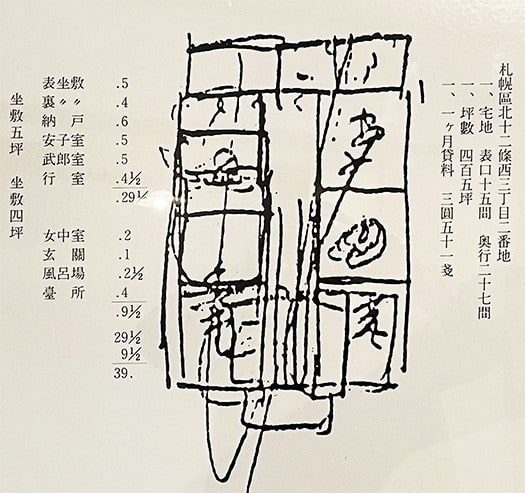 札幌區北十二條西三丁目二番地
一、宅地　表口十五間　奥行二十七間
一、坪數　四百五坪
一、一ヶ月貸料　三圓五十一戔
表坐敷 .5
裏〃〃 .4
納戸 .6
安子室 .5
武郎室 .5
行室 .4½
.29½
女中室 .2
玄關 .1
風呂場 .2½
臺所 .4
.9½
29½
9½
39.
坐敷五坪　坐敷四坪